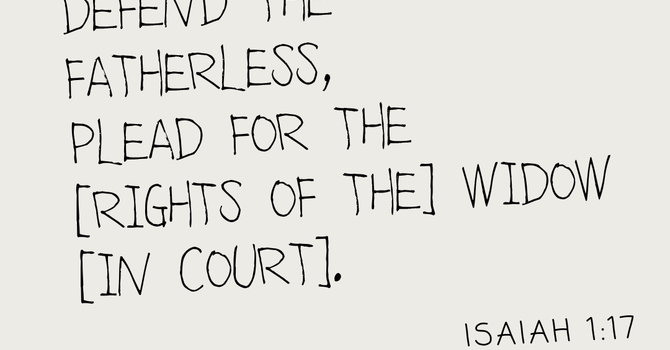 DEFEND THE
FATHERLESS,
PLEAD FOR THE
[RIGHTS OF THE] WIDOW
[IN COURT].
ISAIAH 1:17